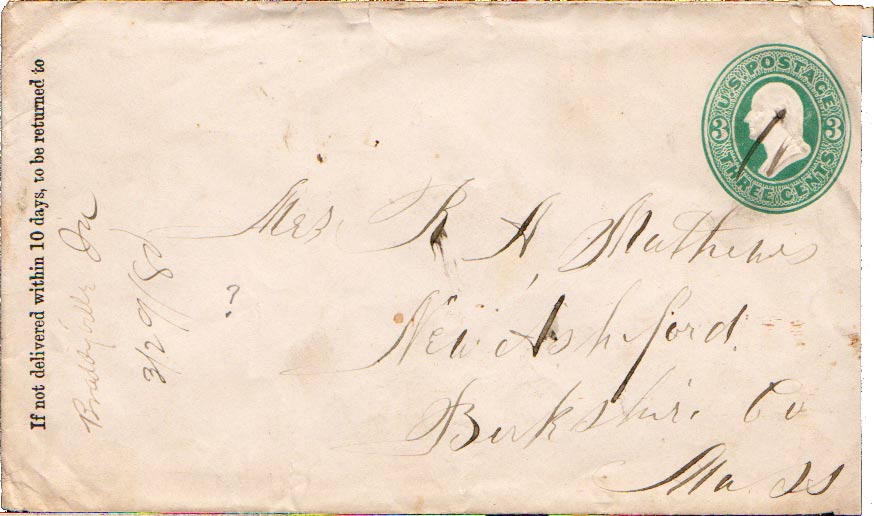 If not delivered within 10 days, to be returned to
In
3/29/80
?
U.S. POSTAGE
3 3
THREE CENTS
Mrs. R A, Mathews
New Ashford.
Berkshire Co
Mass